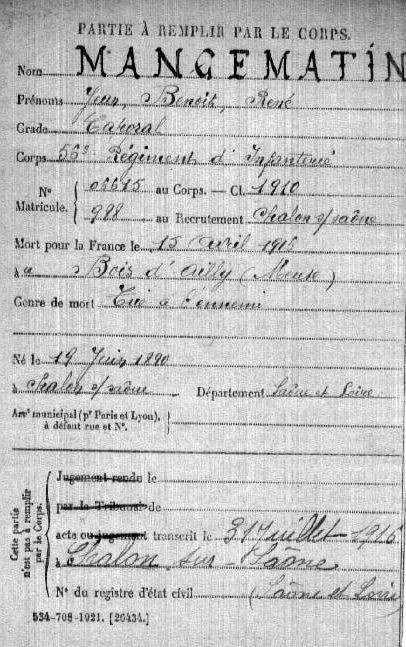 PARTIE À REMPLIR PAR LE CORPS.
Nom MANGEMATIN
Prénoms Jean, Benoit, René
Grade Caporal
Corps 56e Régiment d'Infanterie
N° Matricule. { 06615 au Corps. — Cl. 1910
988 au Recrutement Chalon s/saône
Mort pour la France le 15 avril 1916
à Bois d'Ailly (Meuse)
Genre de mort Tué à l'ennemi
Né le 19 Juin 1890
à Chalon s/saône Département Saône et Loire
Arrt municipal (pr Paris et Lyon),
à défaut rue et N°.
Cette partie n'est pas à remplir par le Corps.
Jugement rendu le
par le Tribunal de
acte ou jugement transcrit le 31 Juillet 1916
à Chalon sur Saône
N° du registre d'état civil (Saône et Loire)
534-708-1921. [26434.]